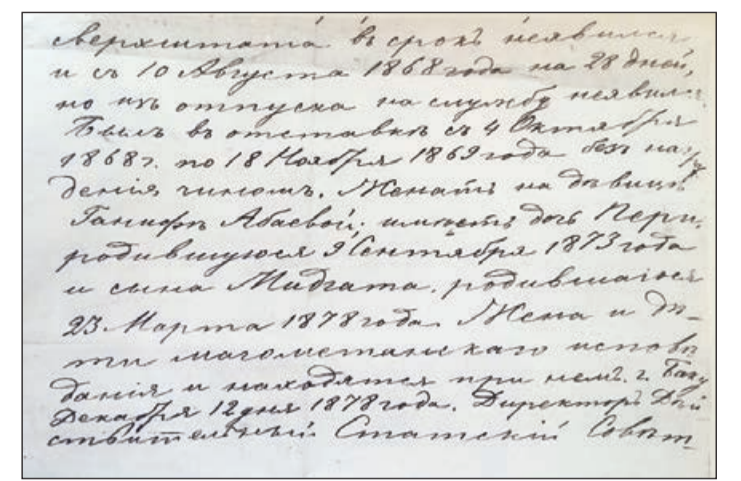 сверхштата въ срокъ неявился
и съ 10 Августа 1868 года на 28 дней,
но изъ отпуска на службу неявился
Былъ въ отставкѣ съ 4 Октября
1868 г. по 18 Ноября 1869 года безъ награж
денія чиномъ. Женатъ на дѣвицѣ
Ганифѣ Абаевой; имѣетъ дочь Пери,
родившуюся 9 Сентября 1873 года
и сына Мидхата, родившагося
23 Марта 1878 года. Жена и дѣ-
ти магометанскаго исповѣ
данія и находятся при немъ. г. Баку
Декабря 12 дня 1878 года. Директоръ Дѣй
ствительный Статскій Совѣт-